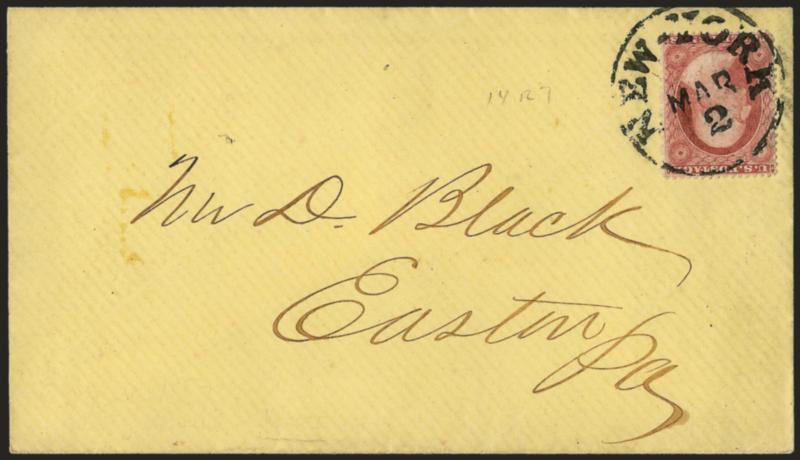 NEW YORK
MAR
2
U.S. POSTAG
14R7
Wm D. Black
Easton Pa